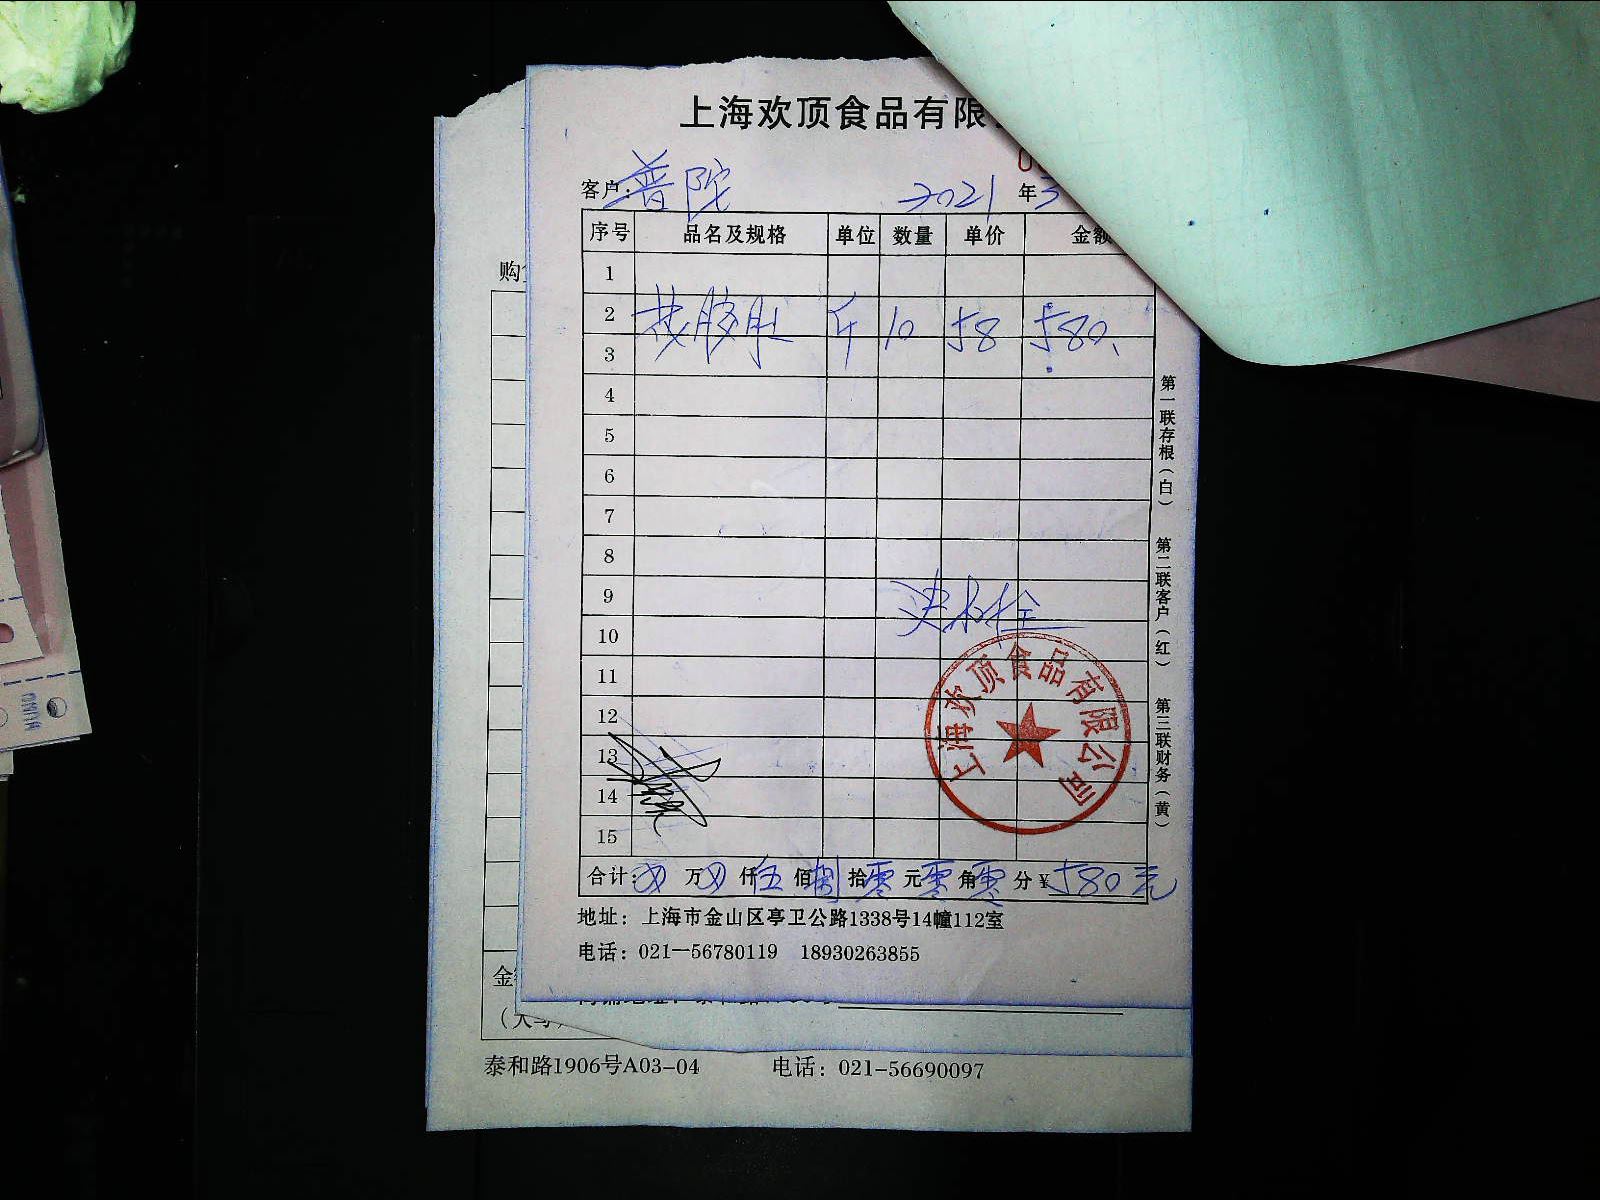 上海欢顶食品有限
客户：普陀 2021年3
序号 品名及规格 单位 数量 单价 金额
1
2 斤 10 58 580
3
4
5
6
7
8
9
10
11
12
13
14
15
上海欢顶食品有限公司
合计： 万 仟伍佰捌拾零元零角零分¥580元
地址：上海市金山区亭卫公路1338号14幢112室
电话：021—56780119 18930263855
第一联存根（白） 第二联客户（红） 第三联财务（黄）
购
金
泰和路1906号A03-04 电话：021-56690097